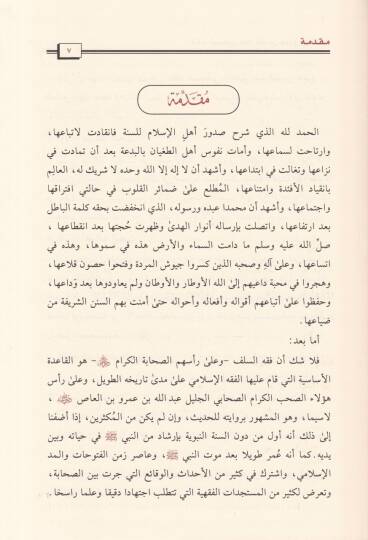 مقدمة
٧
مُقَدِّمَة
الحمد لله الذي شرح صدورَ أهلِ الإسلام للسنة فانقادت لاتباعها،
وارتاحت لسماعها، وأمات نفوس أهل الطغيان بالبدعة بعد أن تمادت في
نزاعها وتغالت في ابتداعها، وأشهد أن لا إله إلا الله وحده لا شريك له، العالِم
بانقياد الأفئدة وامتناعها، المُطلع علىٰ ضمائر القلوب في حالتي افتراقها
واجتماعها، وأشهد أن محمدا عبده ورسوله، الذي انخفضت بحقه كلمة الباطل
بعد ارتفاعها، واتصلت بإرساله أنوار الهدىٰ وظهرت حُجتها بعد انقطاعها ،
صلّ الله عليه وسلم ما دامت السماء والأرض هذه في سموها، وهذه في
اتساعها، وعلىٰ آلِهِ وصحبه الذين كسروا جيوش المردة وفتحوا حصون قلاعها،
وهجروا في محبة داعيهم إلىٰ الله الأوطار والأوطان ولم يعاودوها بعد وَداعها،
وحفظوا علىٰ أتباعهم أقواله وأفعاله وأحواله حتىٰ أمنت بهم السنن الشريفة من
ضياعها.
أما بعد:
فلا شك أن فقه السلف -وعلىٰ رأسهم الصحابة الكرام ﵃- هو القاعدة
الأساسية التي قام عليها الفقه الإسلامي علىٰ مدىٰ تاريخه الطويل، وعلىٰ رأس
هؤلاء الصحب الكرام الصحابي الجليل عبد الله بن عمرو بن العاص ﵄ ،
لاسيما، وهو المشهور بروايته للحديث، وإن لم يكن من المُكثرين، إذا أضفنا
إلىٰ ذلك أنه أول من دون السنة النبوية بإرشاد من النبي ﷺ في حياته وبين
يديه.كما أنه عُمر طويلا بعد موت النبي ﷺ، وعاصر زمن الفتوحات والمد
الإسلامي، واشترك في كثير من الأحداث والوقائع التي جرت بين الصحابة،
وتعرض لكثير من المستجدات الفقهية التي تتطلب اجتهادا دقيقا وعلما راسخا.